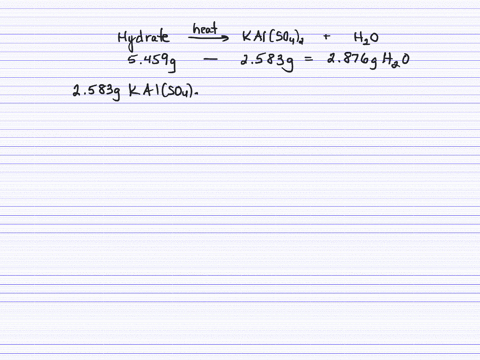 Hydrate heat → KAl(SO4)2 + H2O
5.459g — 2.583g = 2.876g H2O
2.583g KAl(SO4).